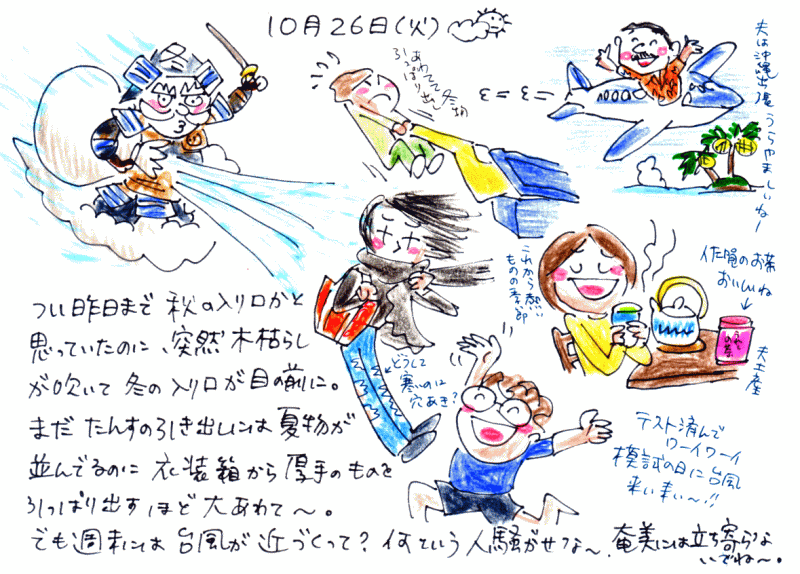 10月26日(火)
あわてて冬物
引っぱり出し
夫は沖縄出張うらやましいねー
これから熱い
ものの季節
佐賀のお茶
おいしいね
夫土産
どうして
寒いのに
穴あき?
テスト済んで
ワーイワーイ
模試の日に台風
来い来い〜!!
つい昨日まで 秋の入り口かと
思っていたのに、突然 木枯らし
が吹いて 冬の入り口が目の前に。
まだ たんすの引き出しには 夏物が
並んでるのに 衣装箱から 厚手のものを
引っぱり出すほど 大あわて〜。
でも週末には 台風が 近づくって? 何という 人騒がせな〜、奄美には立ち寄らな
いでね〜。